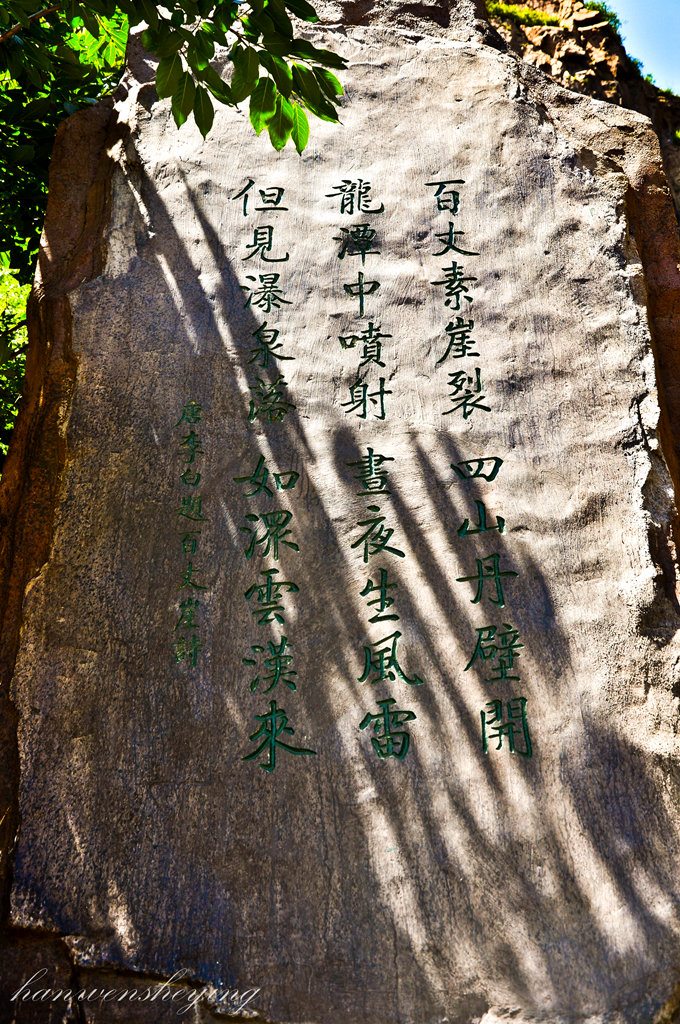 百丈素崖裂 四山丹壁開
龍潭中噴射 晝夜生風雷
但見瀑泉落 如潨雲漢來
唐李白題百丈崖詩
hanwensheying